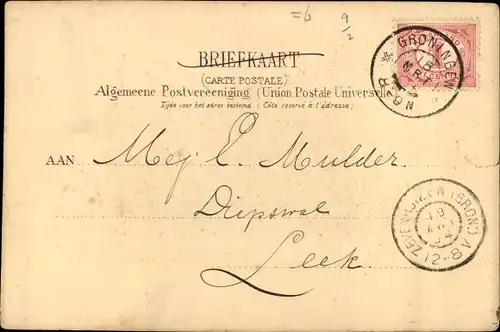 =6 9/2
BRIEFKAART
(CARTE POSTALE)
Algemeene Postvereeniging (Union Postale Universelle)
Zijde voor het adres bestemd (Côté réservé à l'adresse)
GRONINGEN
18
AAN Mej E. Mulder
Diepswal
Leek.
ZEVENHUIZEN (GRON)
19
12-8V